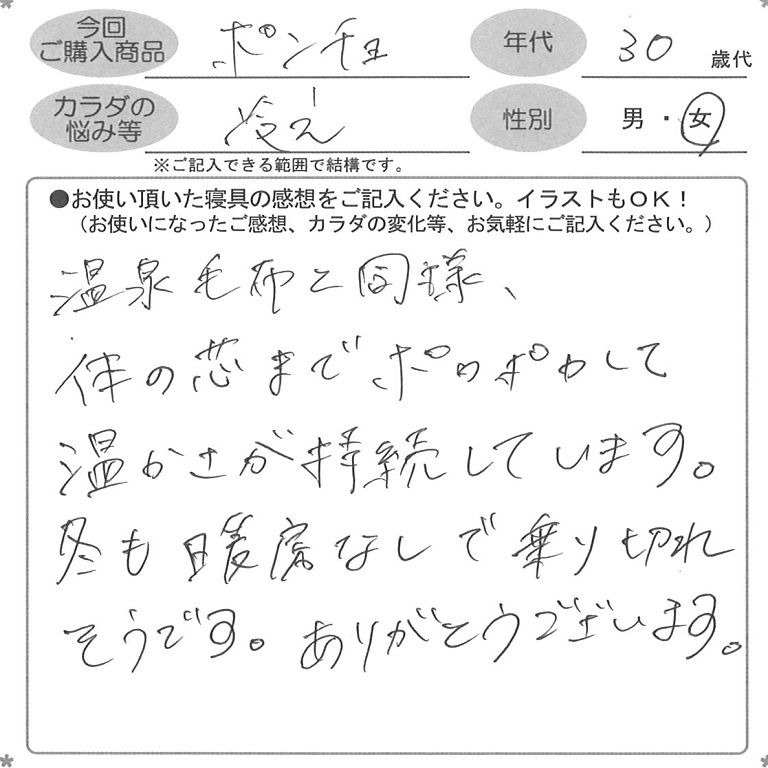 今回
ご購入商品
ポンチョ
年代
30
歳代
カラダの
悩み等
冷え
性別
男・女
※ご記入できる範囲で結構です。
●お使い頂いた寝具の感想をご記入ください。イラストもOK！
（お使いになったご感想、カラダの変化等、お気軽にご記入ください。）
温泉毛布と同様、
体の芯までポカポカして
温かさが持続しています。
冬も暖房なしで乗り切れ
そうです。ありがとうございます。